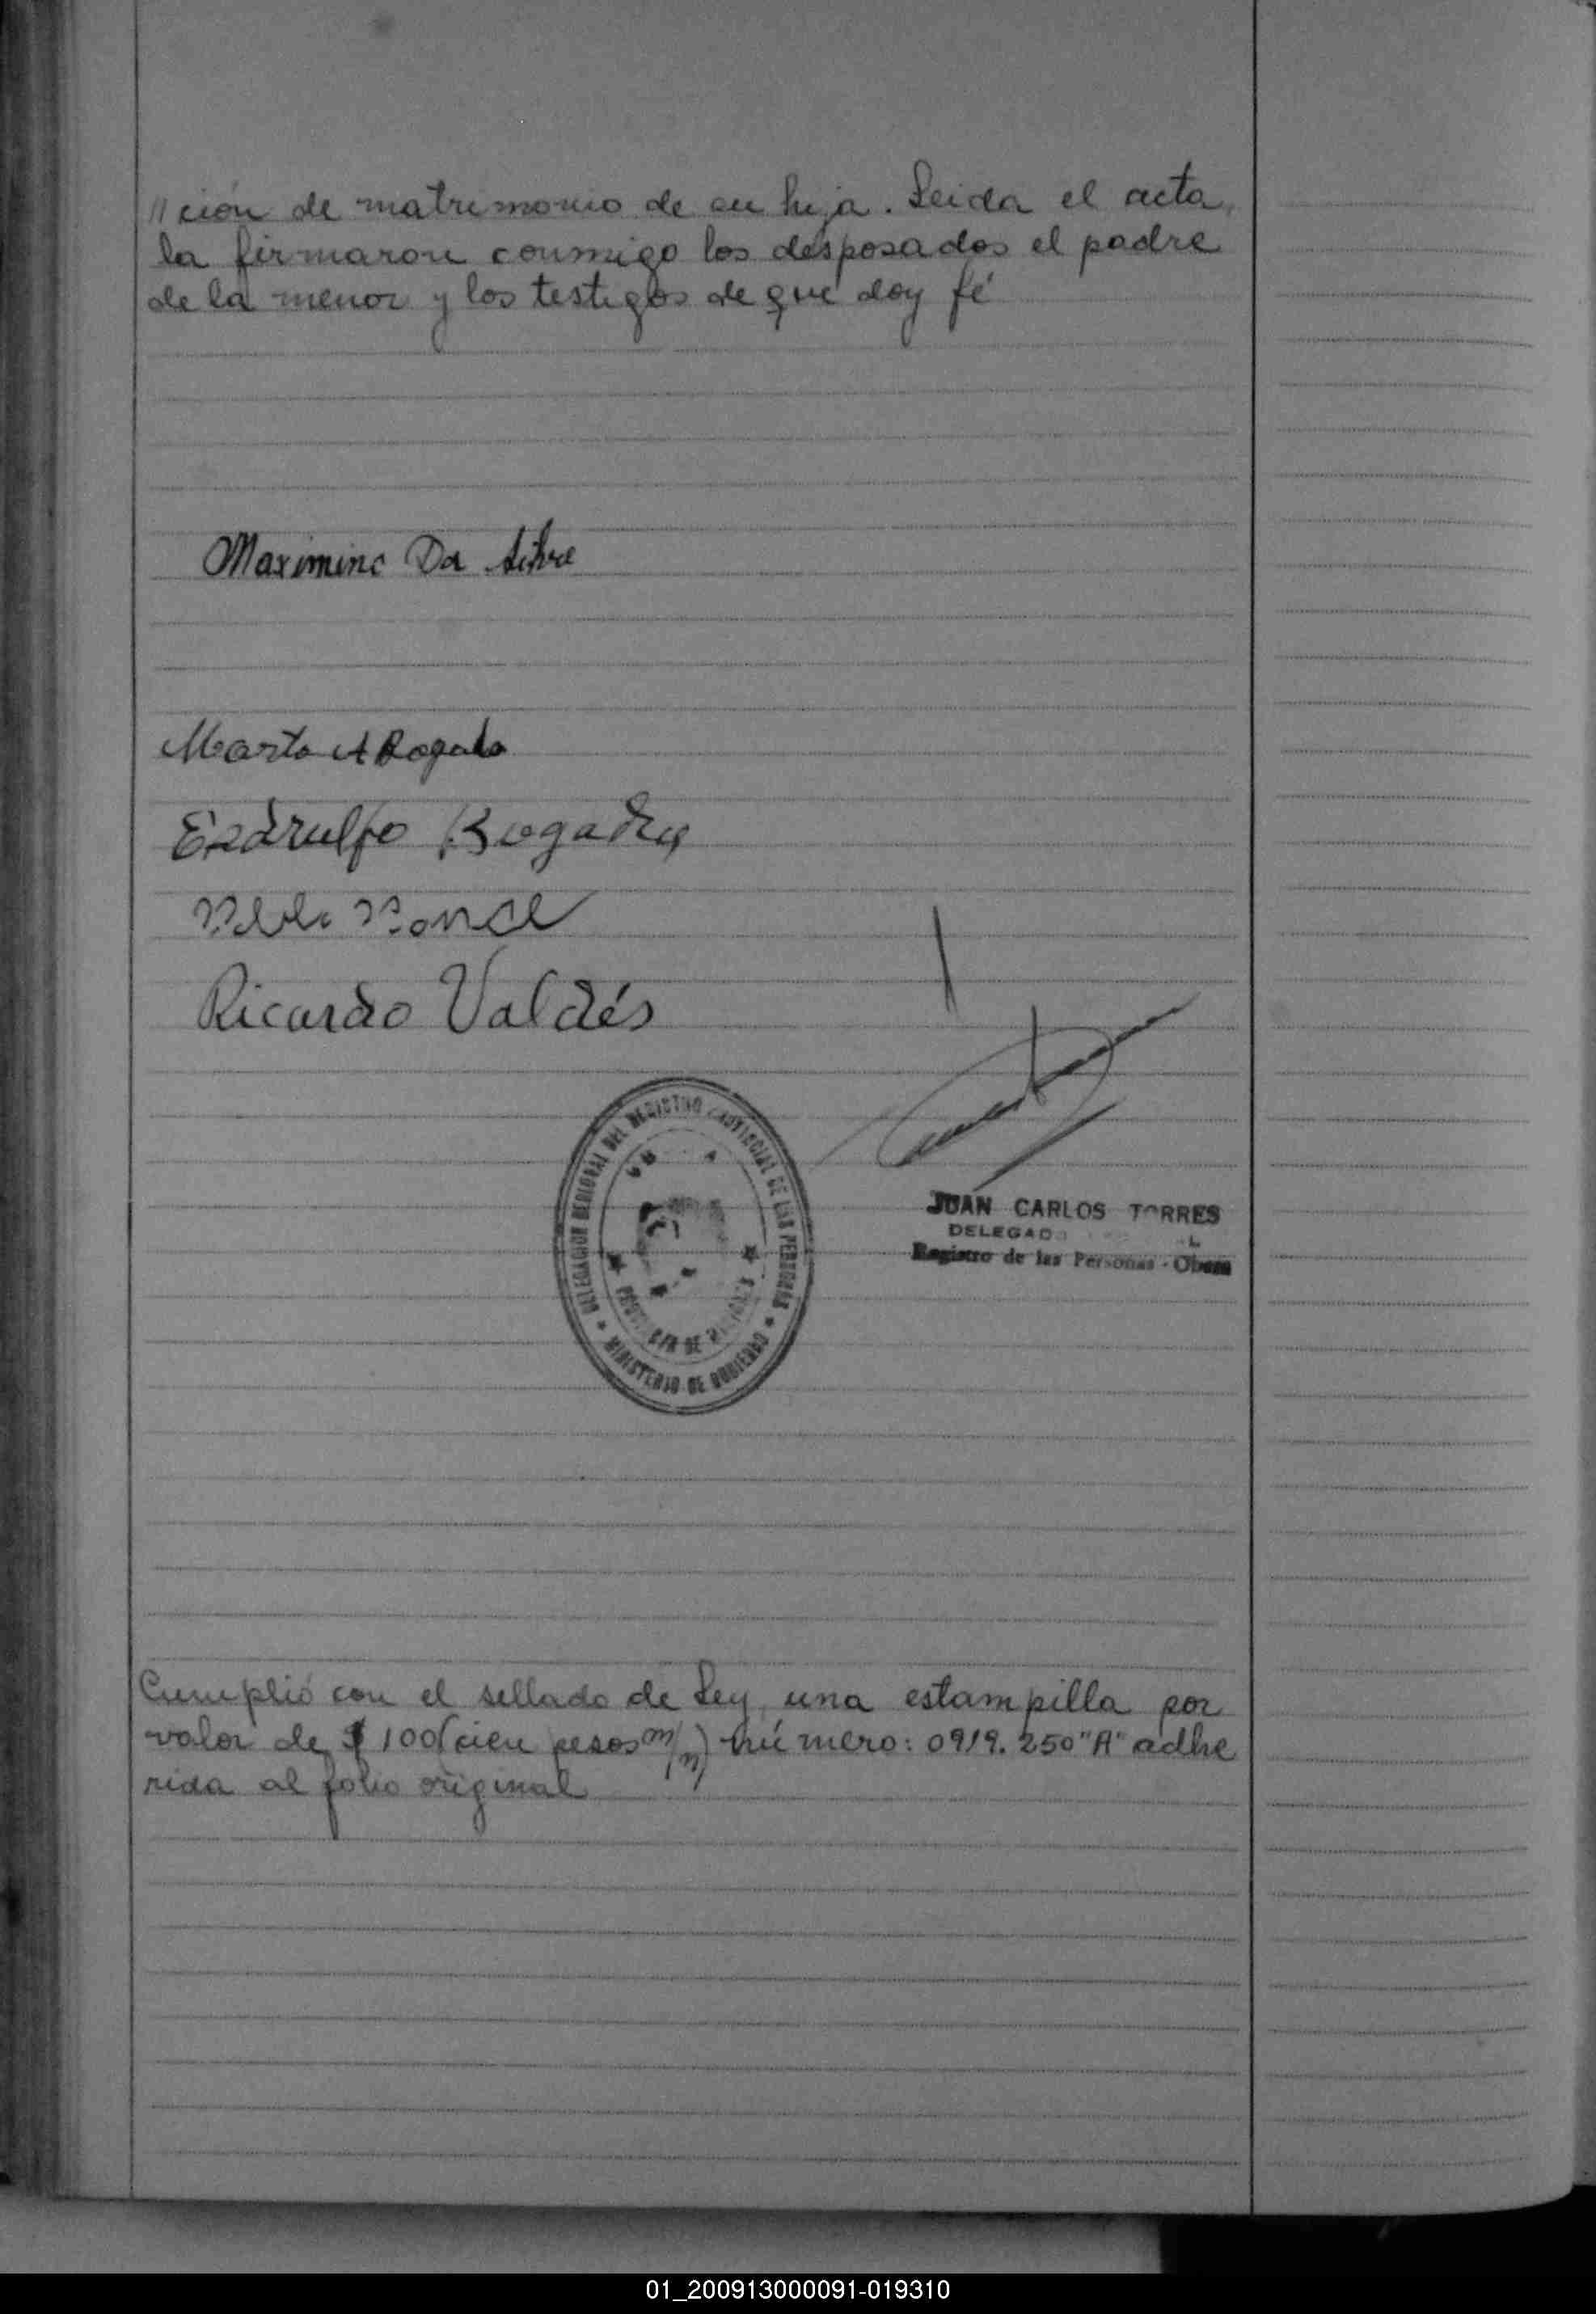 //ción de matrimonio de su hija. Leida el acta,
la firmaron conmigo los desposados el padre
de la menor y los testigos de que doy fé
Maximino Da Silva
Marta A Bogado
Ezdrulfo Bogado
Ponce
Ricardo Valdés
DELEGACION REGIONAL DEL REGISTRO PROVINCIAL DE LAS PERSONAS
PROVINCIA DE MISIONES
MINISTERIO DE GOBIERNO
JUAN CARLOS TORRES
DELEGADO
Registro de las Personas - Obera
Cumplió con el sellado de Ley, una estampilla por
valor de $ 100 (cien pesos m/n) número: 0919.250 "A" adhe
rida al folio original
01_200913000091-019310